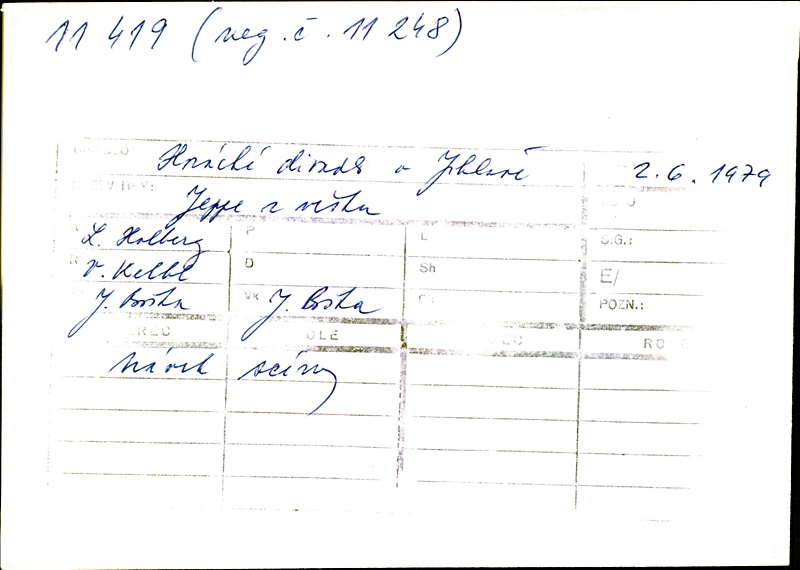 11 419 (neg. č. 11 248)
Horácké divadlo v Jihlavě 2.6.1979
Jeppe z vršku
L. Holberg P L S.G.:
D Sh E/
J. Boška Vk J. Boška POZN.:
Návrh scény